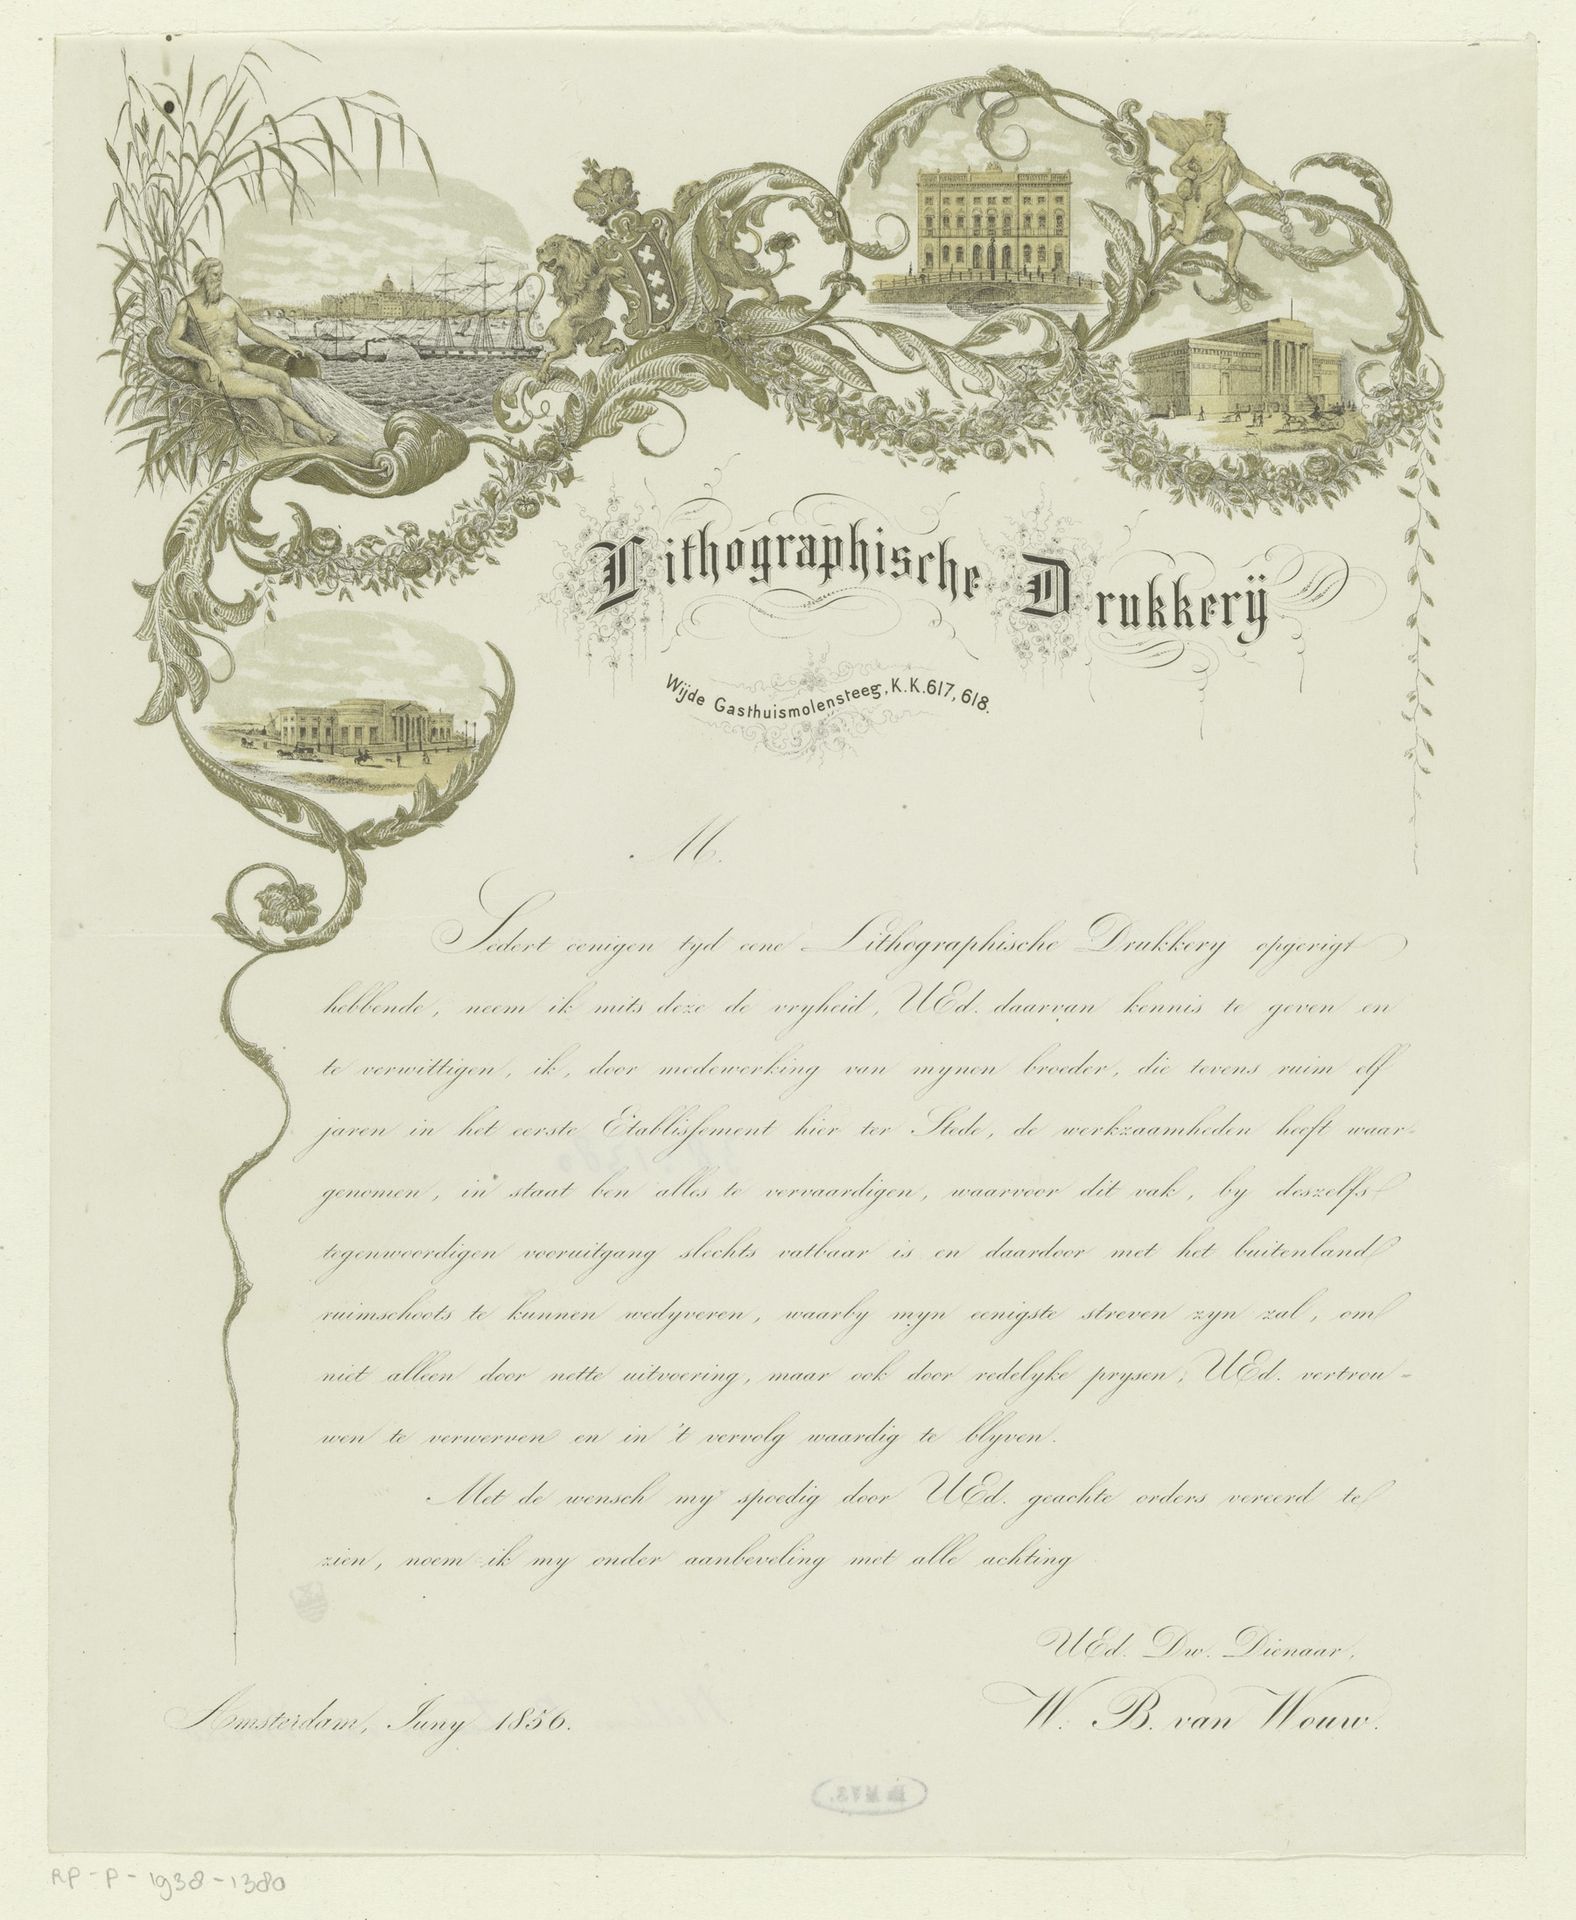 Lithographische Drukkerÿ
Wijde Gasthuismolensteeg, K.K. 617, 618.
M.
Sedert eenigen tyd eene Lithographische Drukkery opgerigt
hebbende, neem ik mits deze de vryheid, UEd. daarvan kennis te geven en
te verwittigen, ik, door medewerking van mynen broeder, die tevens ruim elf
jaren in het eerste Etablissement hier ter Stede, de werkzaamheden heeft waar-
genomen, in staat ben alles te vervaardigen, waarvoor dit vak, by deszelfs
tegenwoordigen vooruitgang slechts vatbaar is en daardoor met het buitenland
ruimschoots te kunnen wedyveren, waarby myn eenigste streven zyn zal, om
niet alleen door nette uitvoering, maar ook door redelyke prysen, UEd. vertrou-
wen te verwerven en in 't vervolg waardig te blyven.
Met de wensch my spoedig door UEd. geachte orders vereerd te
zien, noem ik my onder aanbeveling met alle achting
UEd. Dw. Dienaar,
W. B. van Wouw.
Amsterdam, Juny 1856.
RP-P-1938-1380